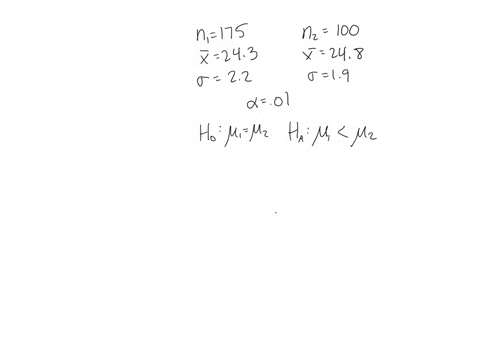 n₁=175 n₂=100
x̄=24.3 x̄=24.8
σ=2.2 σ=1.9
α=.01
H₀:μ₁=μ₂ Hₐ:μ₁<μ₂